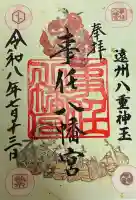 奉拝
遠州 八重神玉
事任八幡宮
令和八年七月十三日